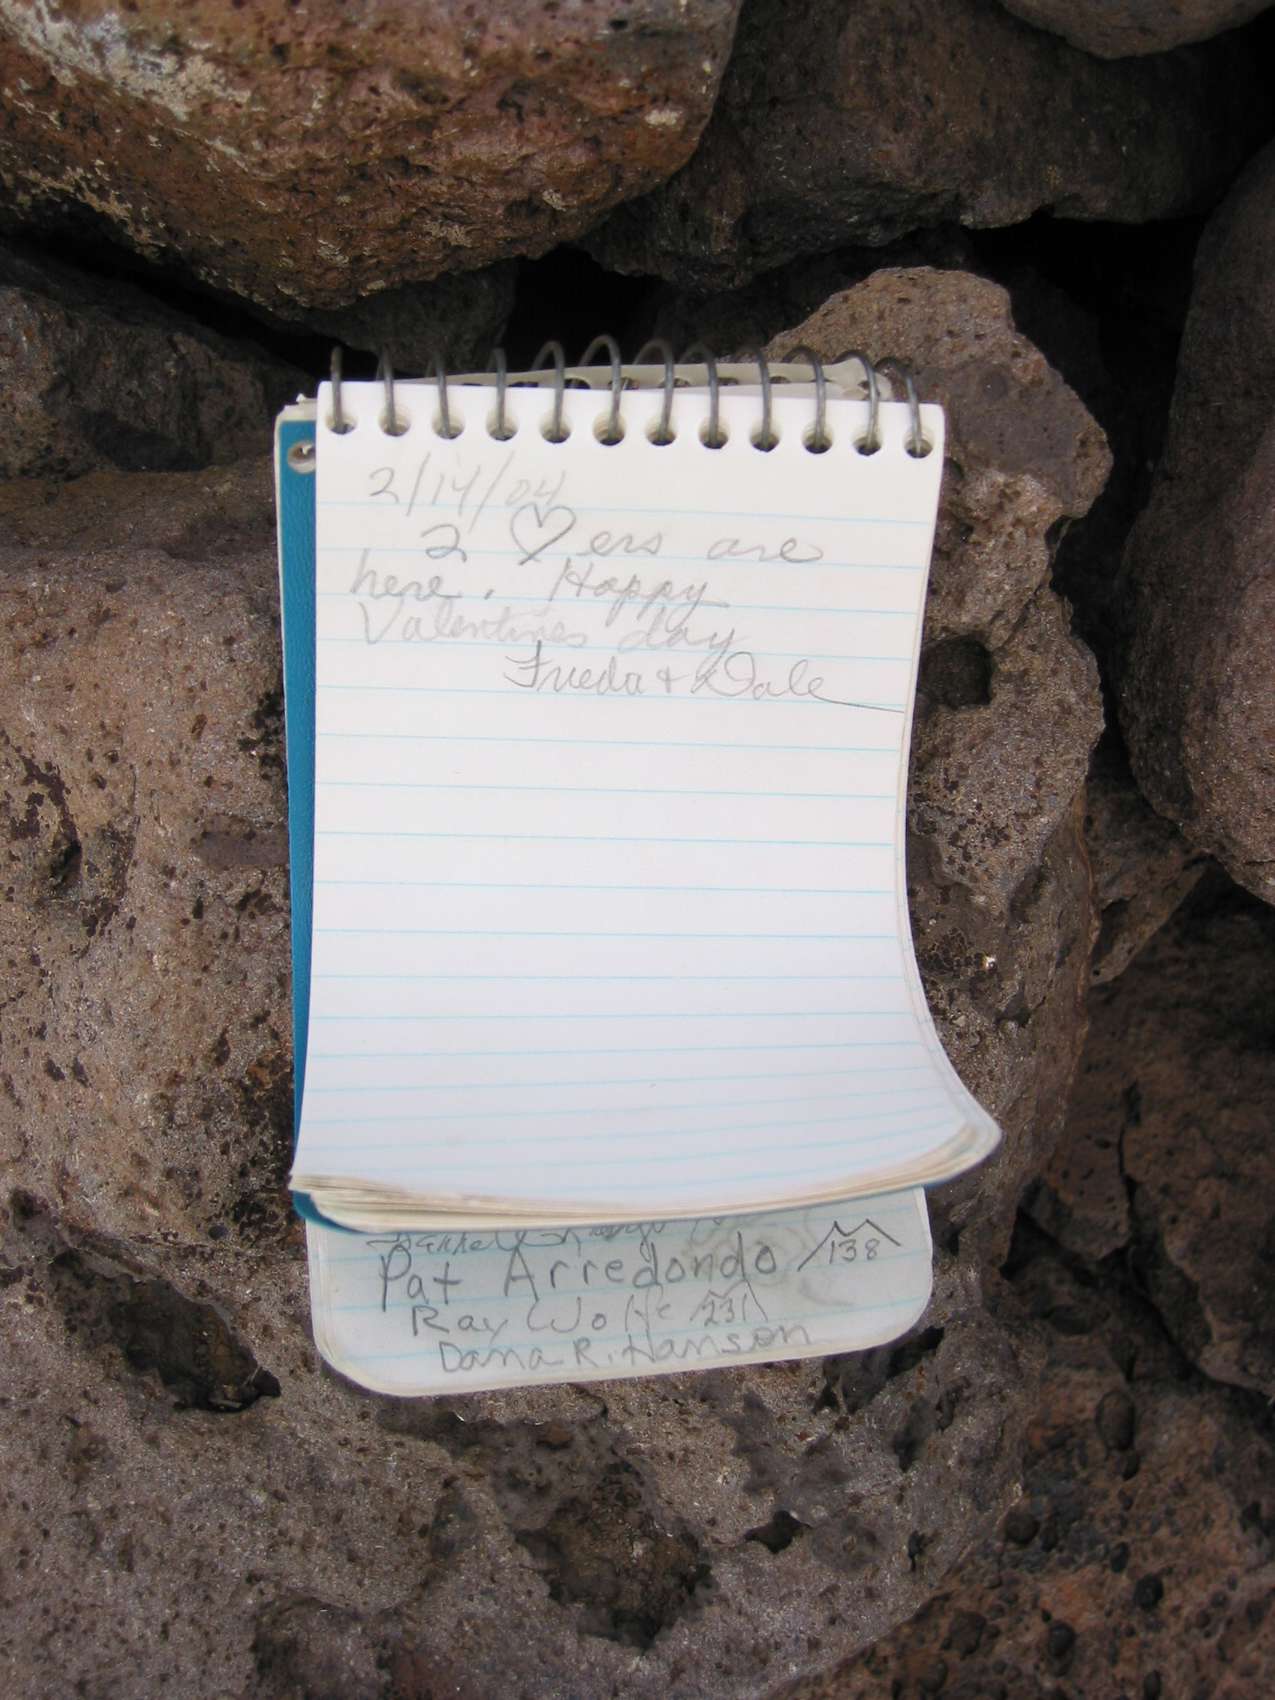 2/14/04
2 ♡ers are
here. Happy
Valentines day
Frieda + Dale
Pat Arredondo 138
Ray Wolfe 231
Dana R. Hanson